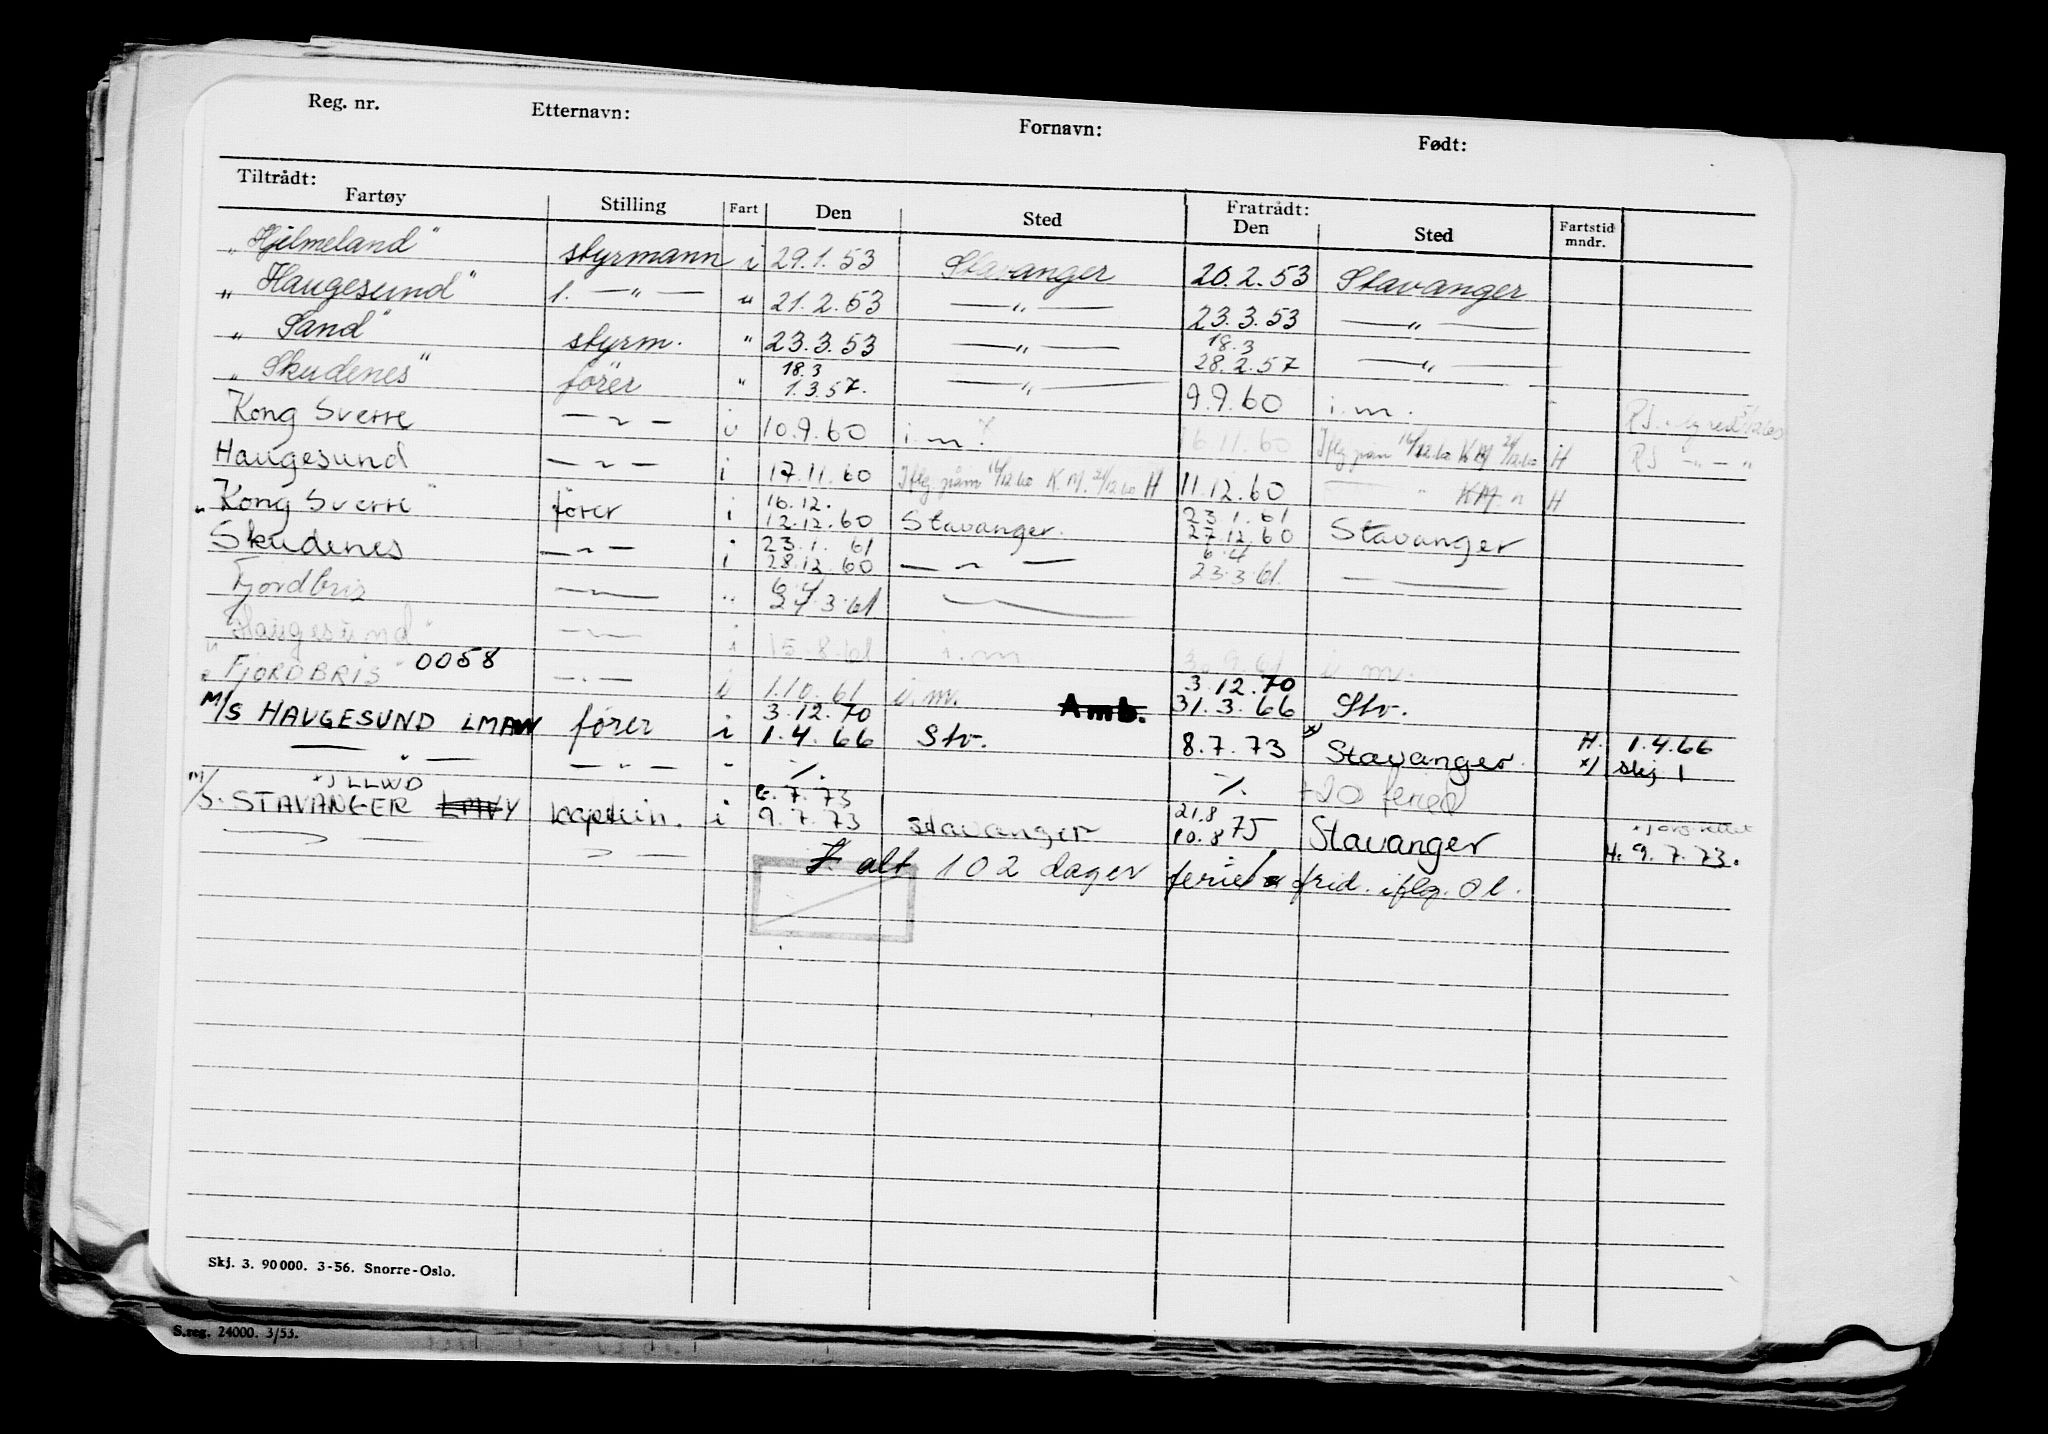 Reg. nr. Etternavn: Fornavn: Født:
Tiltrådt: Fratrådt:
Fartøy Stilling Fart Den Sted Den Sted Fartstid mndr.
„Hjelmeland" styrmann i 29.1.53 Stavanger 20.2.53 Stavanger
„Haugesund" 1. —„— „ 21.2.53 —„— 23.3.53 —„—
18.3
„Sand" styrm. „ 23.3.53 —„— 28.2.57 —„—
18.3
„Skudenes" fører „ 1.3.57. —„— 9.9.60 i.m.
Kong Sverre —„— i 10.9.60 i.m. 16.11.60 H
Haugesund —„— i 17.11.60 K.M. H 11.12.60 H
16.12. 23.1.61
„Kong Sverre" fører i 12.12.60 Stavanger. 27.12.60 Stavanger
23.1.61 6.4
Skudenes —„— i 28.12.60 —„— 23.3.61. —
6.4
Fjordbris — „ 24.3.61. —
„Haugesund" — i 15.8.61 i.m. 30.9.61 i.m.
3.12.70
„FJORDBRIS" 0058 —„— i 1.10.61 i.m. Amb. 31.3.66 Stv.
3.12.70
M/S HAUGESUND LMAW fører i 1.4.66 Stv. 8.7.73 x) Stavanger. H. 1.4.66
—„— —„— - ./. ./. +20 feried x) skj 1
x) LLWD 8.7.73 21.8
M/S. STAVANGER LMVY kaptein. i 9.7.73 Stavanger 10.8 75 Stavanger H. 9.7.73.
I alt 102 dager ferie/ frid. iflg. Ol.
Skj. 3. 90000. 3-56. Snorre-Oslo.
S.reg. 24000. 3/53.